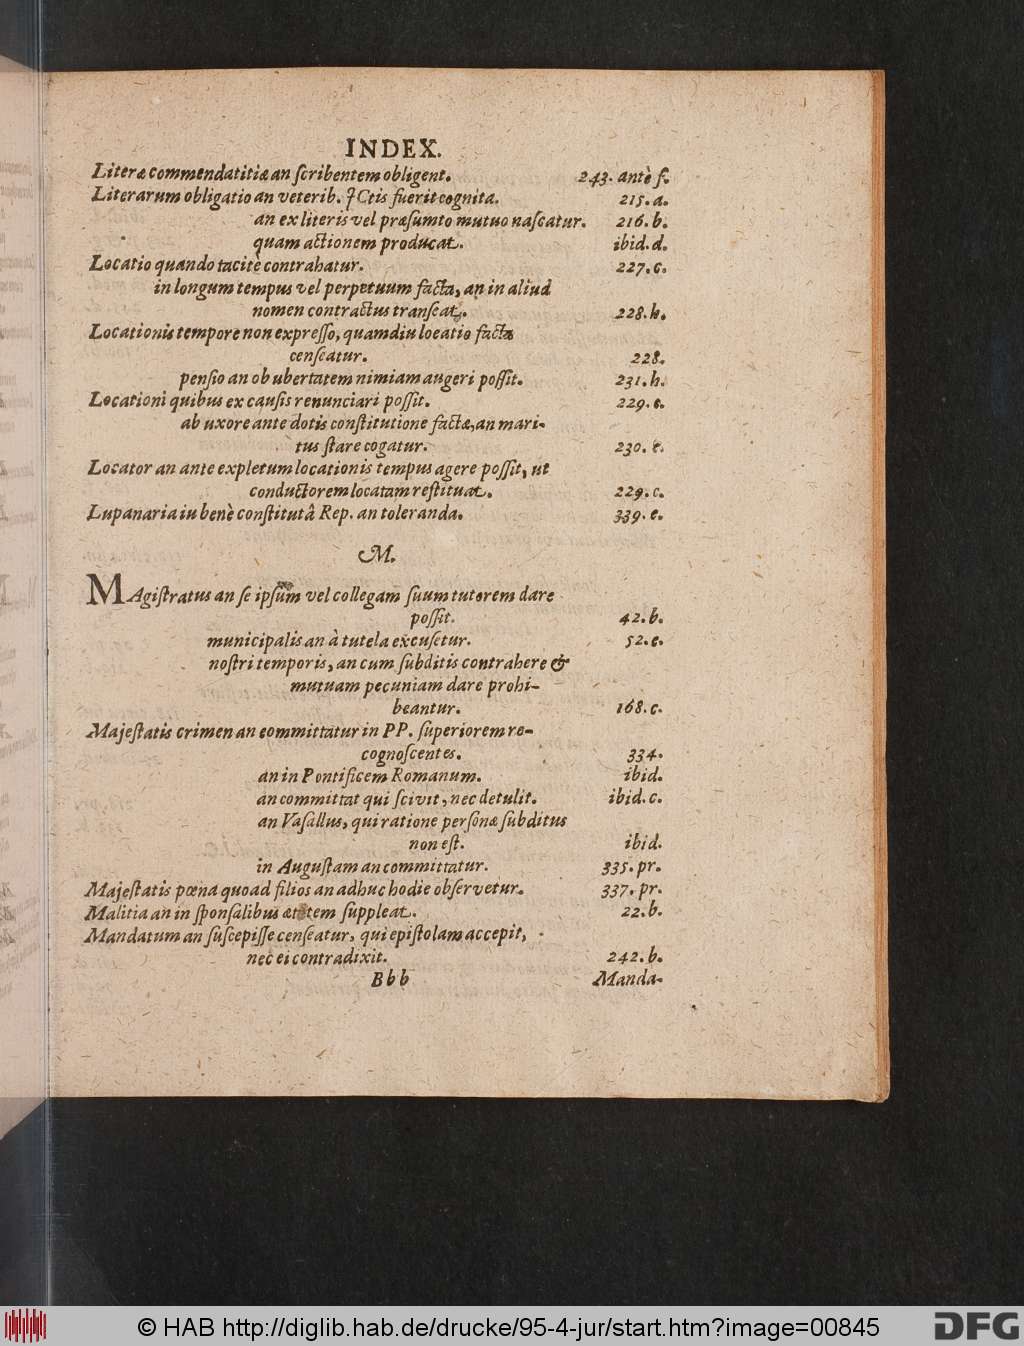 INDEX.
Literæ commendatitiæ an ſcribentem obligent. 243. antè f.
Literarum obligatio an veterib. JCtis fuerit cognita. 215. a.
an ex literis vel præſumto mutuo naſcatur. 216. b.
quam actionem producat. ibid. d.
Locatio quando tacitè contrahatur. 227. c.
in longum tempus vel perpetuum facta, an in aliud
nomen contractus tranſeat. 228. h.
Locationis tempore non expreſſo, quamdiu locatio facta
cenſeatur. 228.
penſio an ob ubertatem nimiam augeri poſſit. 231. h.
Locationi quibus ex cauſis renunciari poſſit. 229. c.
ab uxore ante dotis conſtitutione factæ, an mari-
tus ſtare cogatur. 230. e.
Locator an ante expletum locationis tempus agere poſſit, ut
conductorem locatam reſtituat. 229. c.
Lupanaria iu benè conſtitutâ Rep. an toleranda. 339. e.
M.
MAgiſtratus an ſe ipſum vel collegam ſuum tutorem dare
poſſit. 42. b.
municipalis an à tutela excuſetur. 52. e.
noſtri temporis, an cum ſubditis contrahere &
mutuam pecuniam dare prohi-
beantur. 168. c.
Majeſtatis crimen an committatur in PP. ſuperiorem re-
cognoſcentes. 334.
an in Pontificem Romanum. ibid.
an committat qui ſcivit, nec detulit. ibid. c.
an Vaſallus, qui ratione perſonæ ſubditus
non eſt. ibid.
in Auguſtam an committatur. 335. pr.
Majeſtatis pœna quoad filios an adhuc hodie obſervetur. 337. pr.
Malitia an in ſponſalibus ætatem ſuppleat. 22. b.
Mandatum an ſuſcepiſſe cenſeatur, qui epiſtolam accepit,
nec ei contradixit. 242. b.
Bbb Manda-
© HAB http://diglib.hab.de/drucke/95-4-jur/start.htm?image=00845
DFG